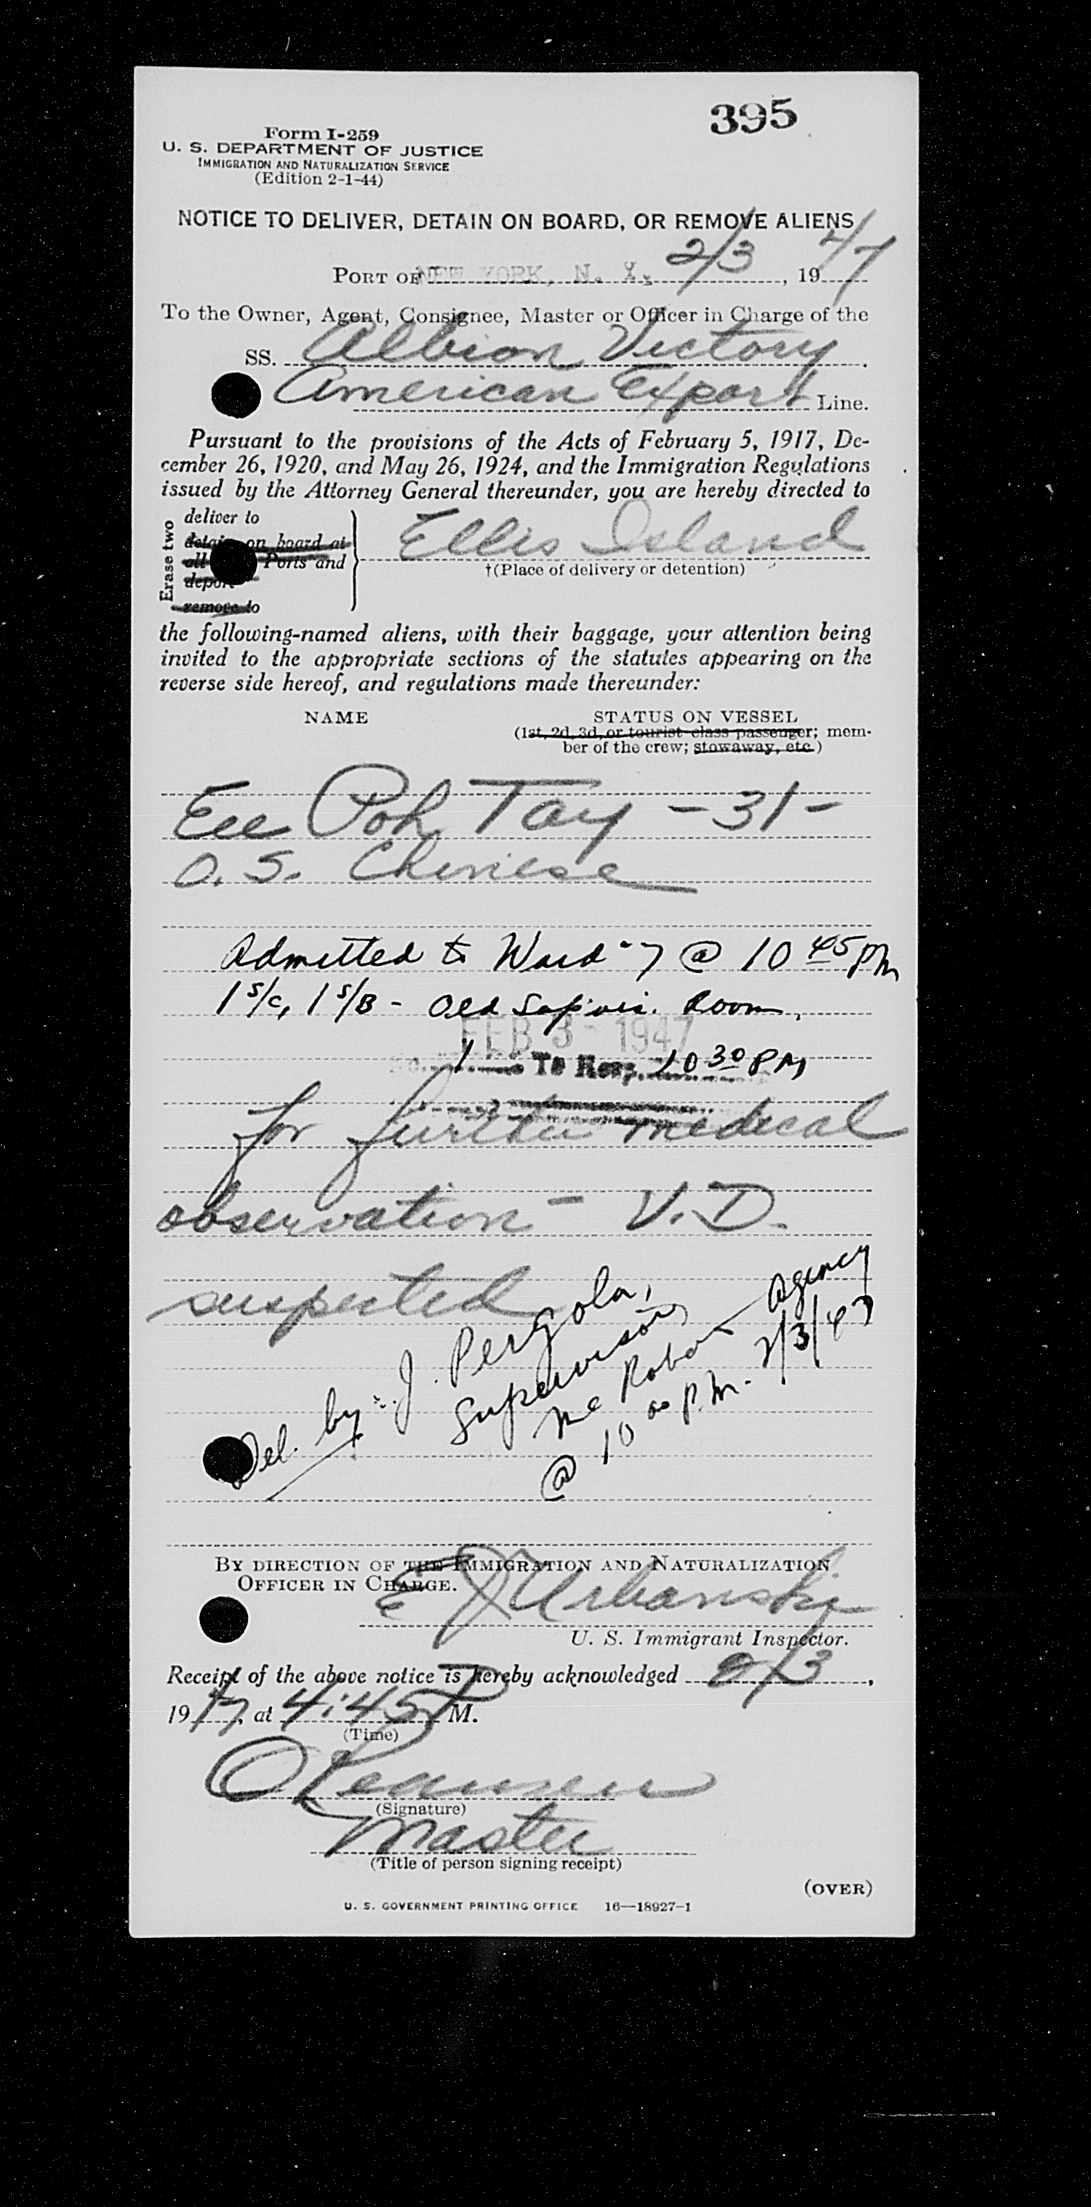 395
Form I-259
U. S. DEPARTMENT OF JUSTICE
IMMIGRATION AND NATURALIZATION SERVICE
(Edition 2-1-44)
NOTICE TO DELIVER, DETAIN ON BOARD, OR REMOVE ALIENS
PORT OF NEW YORK, N. Y., 2/3, 1947
To the Owner, Agent, Consignee, Master or Officer in Charge of the
SS. Albion Victory.
American Export Line.
Pursuant to the provisions of the Acts of February 5, 1917, De-
cember 26, 1920, and May 26, 1924, and the Immigration Regulations
issued by the Attorney General thereunder, you are hereby directed to
Erase two
deliver to
detain on board at
all Ports and
deport
remove to
Ellis Island
†(Place of delivery or detention)
the following-named aliens, with their baggage, your attention being
invited to the appropriate sections of the statutes appearing on the
reverse side hereof, and regulations made thereunder:
NAME STATUS ON VESSEL
(1st, 2d, 3d, or tourist class passenger; mem-
ber of the crew; stowaway, etc.)
Eee Poh Tay - 31 -
O.S. Chinese
Admitted to Ward 7 @ 10 45 PM
1 S/C, 1 S/B - Old Room,
FEB 3 - 1947
No. 1 To Hosp. 10 30 PM
for further medical
observation - V.D.
suspected
Del. by J. Pergola,
Supervisor,
Agency
@ 10 00 P.M. 2/3/47
BY DIRECTION OF THE IMMIGRATION AND NATURALIZATION
OFFICER IN CHARGE.
E J Urbanski
U. S. Immigrant Inspector.
Receipt of the above notice is hereby acknowledged 2/3,
1947, at 4:45 P M.
(Time)
(Signature)
Master
(Title of person signing receipt)
(OVER)
U. S. GOVERNMENT PRINTING OFFICE 16—18927-1